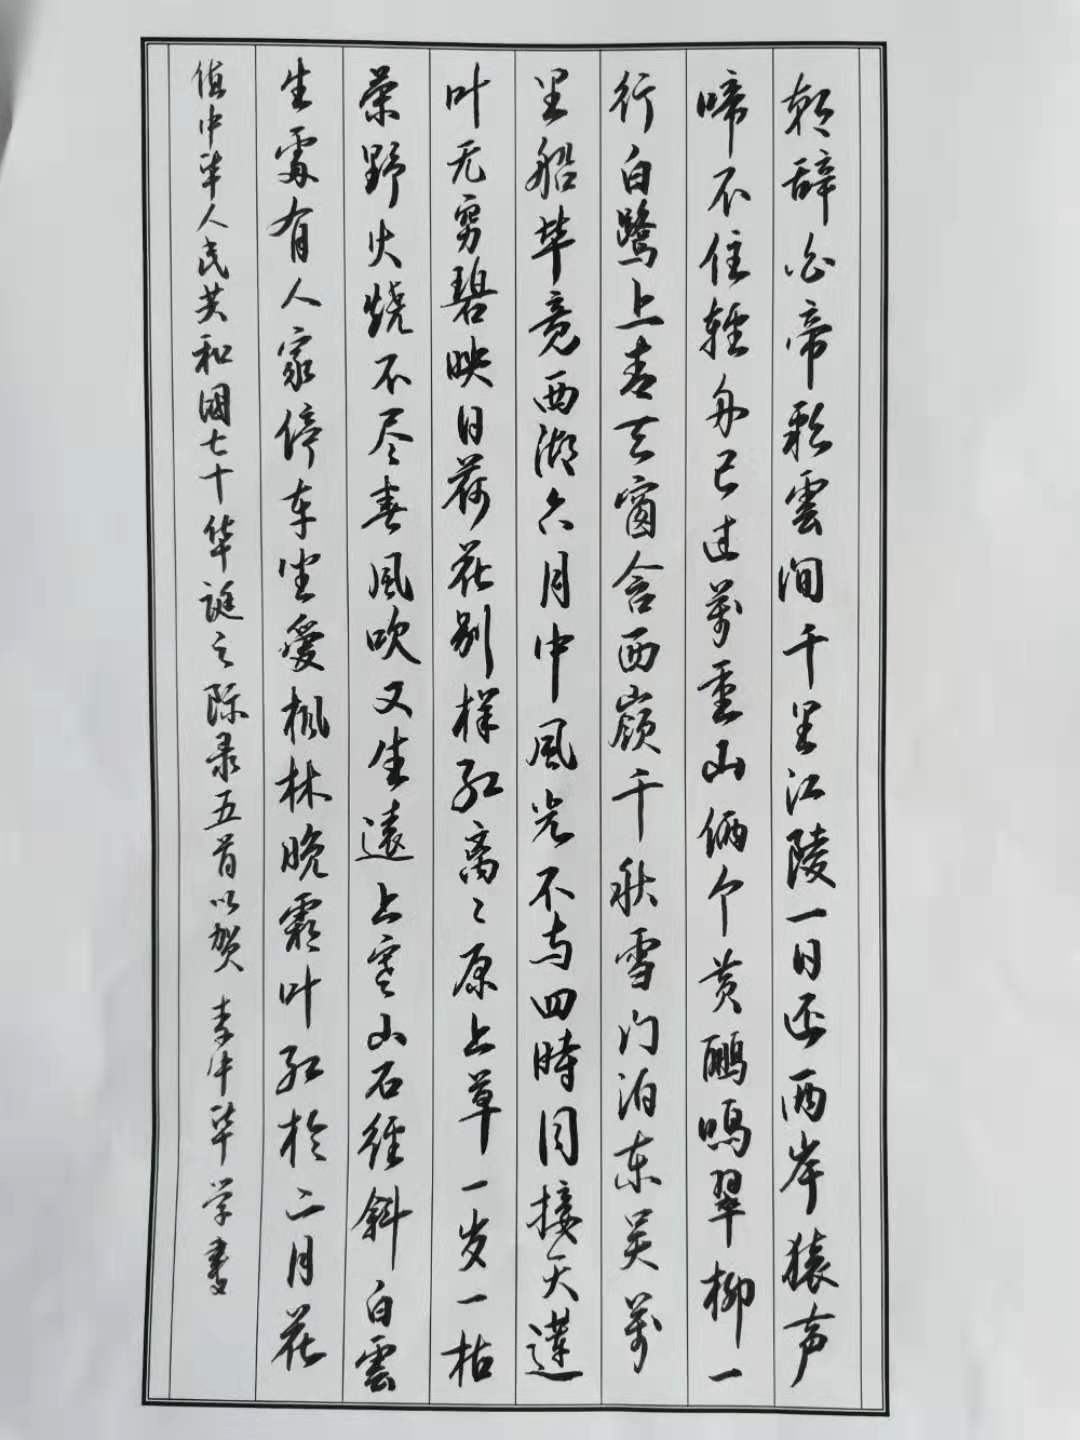 朝辞白帝彩雲间千里江陵一日还两岸猿声
啼不住轻舟已过萬重山俩个黄鹂鸣翠柳一
行白鹭上青天窗含西嶺千秋雪门泊东吴萬
里船毕竟西湖六月中風光不与四時同接天蓮
叶无穷碧映日荷花别样红离〻原上草一岁一枯
荣野火烧不尽春風吹又生遠上寒山石径斜白雲
生處有人家停车坐愛枫林晚霜叶红於二月花
值中华人民共和國七十华诞之际录五首以贺 李中华学書